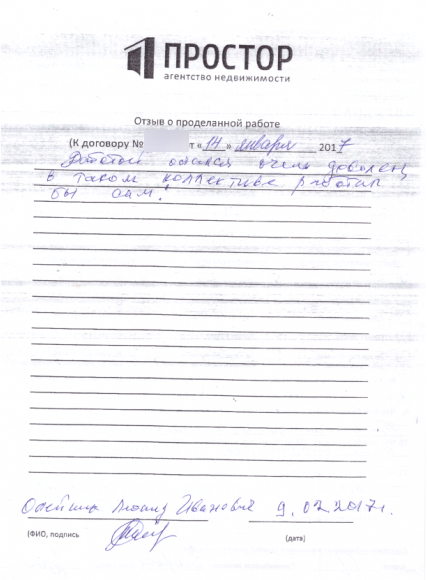 ПРОСТОР
агентство недвижимости
Отзыв о проделанной работе
(К договору № т «14» января 2017
Работой остался очень доволен,
в таком коллективе работал
бы сам!
Иванович 9.02.2017г.
(ФИО, подпись (дата)